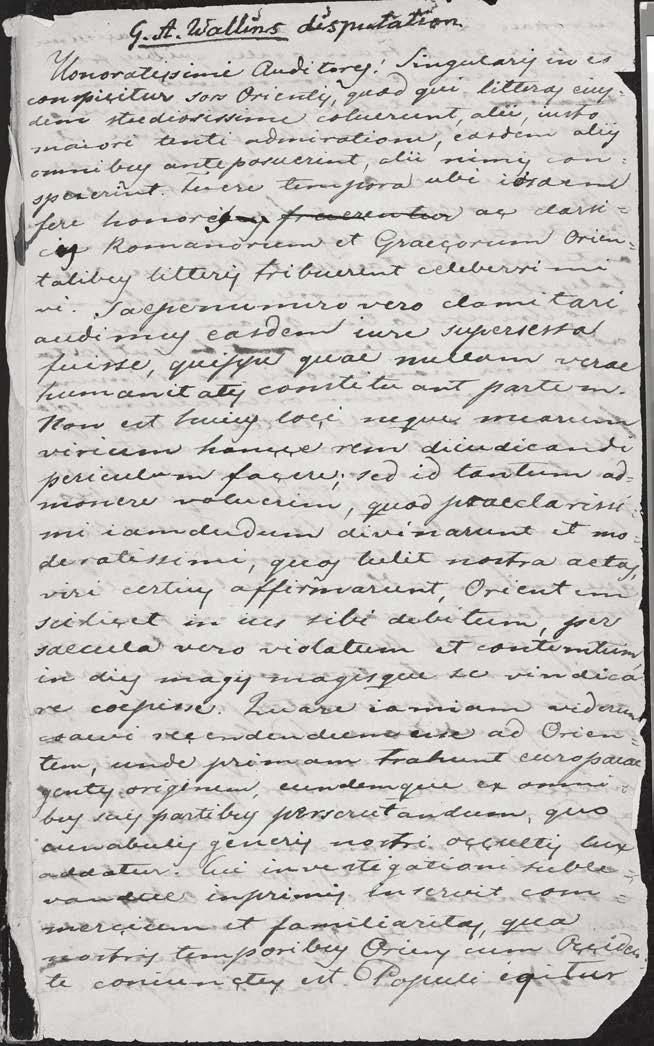 G. A. Wallins disputation
Honoratissimi Auditores! Singularis in eo
conspicitur sors Orientis, quod qui litteras eius-
dem studiosissime coluerunt, alii, iusto
maiori tenti admiratione, easdem aliis
omnibus anteposuerint, alii nimis con-
spexerint. Fuere tempora ubi iisdem
fere honores ac classi-
cis Romanorum et Graecorum Orien-
talibus litteris tribuerent celeberrimi
viri. Saepenumero vero clamitari
audimus easdem iure supersessa
fuisse, quippe quae nullam verae
humanitatis constituant partem.
Non est huius loci neque mearum
virium hancce rem diiudicandi
periculum facere; sed id tantum ad-
monere voluerim, quod praeclarissi-
mi iamdudum divinarunt et mo-
deratissimi, quos tulit nostra aetas,
viri certius affirmarunt, Orientem
scilicet in ius sibi debitum, per
saecula vero violatum et contemtum,
in dies magis magisque se vindica
re coepisse. Quare iam iam viderunt
recendendum esse ad Orien-
tem, unde primam trahunt europaeae
gentes originem, eundemque ex omni-
bus suis partibus perscrutandum, quo
cunabulis generis nostri occultis lux
addatur. Cui investigationi suble-
vandae inprimis inservit com-
mercium et familiaritas, qua
nostris temporibus Oriens cum Occiden-
te coniunctus est. Populi igitur